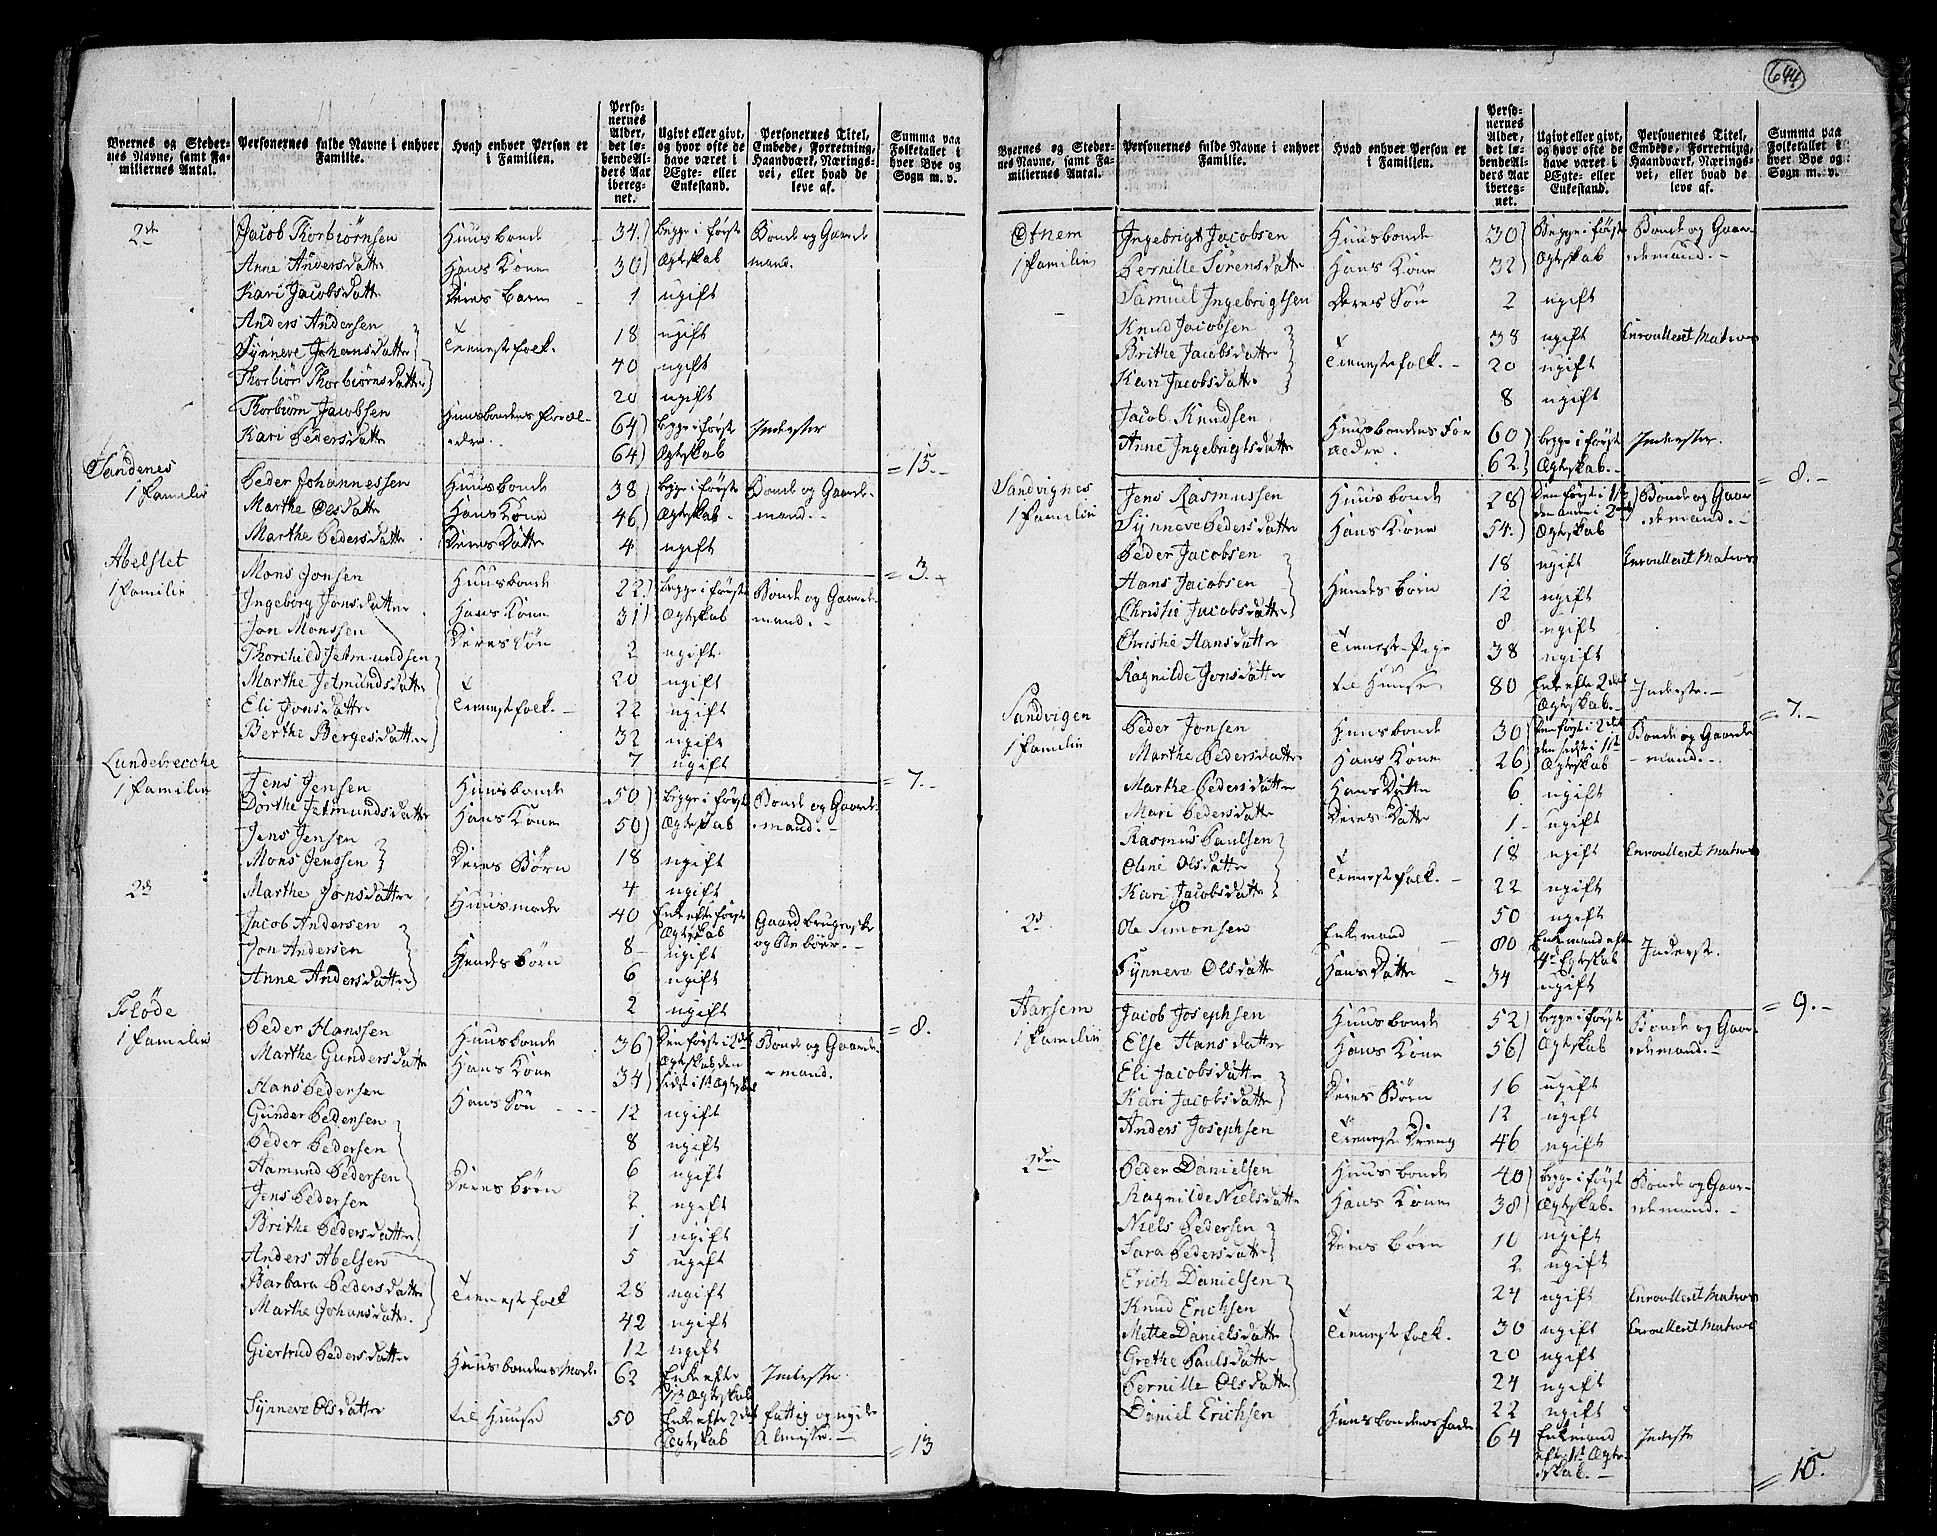 644
Byernes og Stedernes Navne, samt Familiernes Antal.
Personernes fulde Navne i enhver Familie.
Hvad enhver Person er i Familien.
Personernes Alder, det løbende Alders Aar iberegnet.
Ugivt eller givt, og hvor ofte de have været i Ægte- eller Enkestand.
Personernes Titel, Embede, Forretning, Haandværk, Næringsvei, eller hvad de leve af.
Summa paa Folketallet i hver Bye og Sogn m. v.
2de Jacob Thorbiørnsen Huusbonde 34 begge i første Bonde og Gaarde
Anne Andersdatter Hans Kone 30 Ægteskab mand.
Kari Jacobsdatter Deres barn 1 ugift
Anders Andersen 18 ugift
Synneve Johansdatter Tienestefolk 40 ugift
Thorbiør Thorbiørnsdatter 20 ugift
Thorbiørn Jacobsen Huusbondens foræl- 64 begge i første Inderster
Kari Pedersdatter 64 Ægteskab
= 15.
Sandenes
1 Familie Peder Johannessen Huusbonde 38 begge i første Bonde og Gaarde-
Marthe Olsdatter Hans Kone 46 Ægteskab mand.
Marthe Pedersdatter Deres Datter 4 ugift
= 3.
Abelslet
1 Familie Mons Jonsen Huusbonde 22 begge i første Bonde og Gaarde-
Ingeborg Jonsdatter Hans Kone 31 Ægteskab mand.
Jon Monssen Deres Søn 2 ugift
Thorchild Jetmundsen 20 ugift
Marthe Jetmundsdatter Tienestefolk 22 ugift
Eli Jonsdatter 32 ugift
Berthe Bergesdatter 7 ugift
= 7.
Lundebrecche
1 Familie Jens Jensen Huusbonde 50 begge i første Bonde og Gaarde-
Dorthe Jetmundsdatter Hans Kone 50 Ægteskab mand.
Jens Jensen 18 ugift
Mons Jenssen Deres Børn 4 ugift
2de Marthe Jonsdatter Huusmoder 40 Enke efter første Ægteskab Gaardbrugerske
Jacob Andersen 8 ugift
Jon Andersen Hendes børn 6 ugift
Anne Andersdatter 2 ugift
= 8.
Fløde
1 Familie Peder Hanssen Huusbonde 36 Den første i 2det Bonde og Gaarde-
Marthe Gundersdatter Hans Kone 34 Ægteskab den sidste i 1ste Ægteskab mand.
Hans Pedersen Hans Søn 12 ugift
Gunder Pedersen 8 ugift
Peder Pedersen 6 ugift
Aamund Pedersen Deres børn 2 ugift
Jens Pedersen 1 ugift
Brithe Pedersdatter 5 ugift
Anders Abelsen 28 ugift
Barbara Pedersdatter Tienestefolk 42 ugift
Marthe Johansdatter 12 ugift
Giertrud Pedersdatter Huusbondens Moder 62 Enke efter 1ste Ægteskab Inderste.
Synneve Olsdatter til Huuse 50 Enke efter 2det Ægteskab fattig og nyder Almisse.
= 13
Byernes og Stedernes Navne, samt Familiernes Antal.
Personernes fulde Navne i enhver Familie.
Hvad enhver Person er i Familien.
Personernes Alder, det løbende Alders Aar iberegnet.
Ugivt eller givt, og hvor ofte de have været i Ægte- eller Enkestand.
Personernes Titel, Embede, Forretning, Haandværk, Næringsvei, eller hvad de leve af.
Summa paa Folketallet i hver Bye og Sogn m. v.
Otnem Ingebrigt Jacobsen Huusbonde 30 Begge i første Bonde og Gaar-
1 Familie Pernille Sørensdatter Hans Kone 32 Ægteskab demand.
Samuel Ingebrigtsen Deres Søn 2 ugift
Knud Jacobsen 38 ugift Enroulleret Matros
Brithe Jacobsdatter Tienestefolk. 20 ugift
Kari Jacobsdatter 8 ugift
Jacob Knudsen Huusbondens For 60 begge i første Inderster.
Anne Ingebrigtsdatter ældre. 62 Ægteskab.
= 8.
Sandvignes Jens Rasmussen Huusbonde 28 Den første i 1ste Bonde og Gaar
1 Familie Synneve Pedersdatter Hans Kone 54 den anden i 2det Ægteskab demand.
Peder Jacobsen 18 ugift Enroulleret Matros
Hans Jacobsen Hendes børn 12 ugift
Christie Jacobsdatter 8 ugift
Christie Hansdatter Tieneste-Pige 38 ugift
Ragnilde Jonsdatter til Huuse 80 Enke efter 2det Ægteskab. Inderste.
= 7.
Sandvigen Peder Jonsen Huusbonde 30 Den første i 2det Bonde og Gaarde
1 Familie Marthe Pedersdatter Hans Kone 26 den sidste i 1ste Ægteskab mand.
Marthe Pedersdatter Hans Datter 6 ugift
Mari Pedersdatter Deres Datter 1 ugift
Rasmus Paulsen 18 ugift Enroulleret Matros
Oline Olsdatter Tienestefolk. 22 ugift
Kari Jacobsdatter 50 ugift
2de Ole Simonsen Enkemand 80 Enkemand efter 4de Egteskab Inderste.
Synneva Olsdatter Hans Datter 34 ugift
= 9.
Aarsem Jacob Josephsen Huusbonde 52 begge i første Bonde og Gaar-
1 Familie Else Hansdatter Hans Kone 56 Ægteskab demand.
Eli Jacobsdatter 16 ugift
Kari Jacobsdatter Deres Børn 12 ugift
Anders Josephsen Tieneste Dreng 46 ugift
2den Peder Danielsen Huusbonde 40 begge i første Bonde og Gaar-
Ragnilde Nielsdatter Hans Kone 38 Ægteskab. demand.
Niels Pedersen 10 ugift
Sara Pedersdatter Deres børn 2 ugift
Erich Danielsen 24 ugift Enroulleret Matros
Knud Erichsen 30 ugift Enroulleret Matros
Mette Danielsdatter Tienestefolk. 20 ugift
Grethe Paulsdatter 24 ugift
Pernille Olsdatter 22 ugift
Daniel Erichsen Huusbondens fader 64 Enkemand efter 1ste Ægteskab. Inderste
= 15.